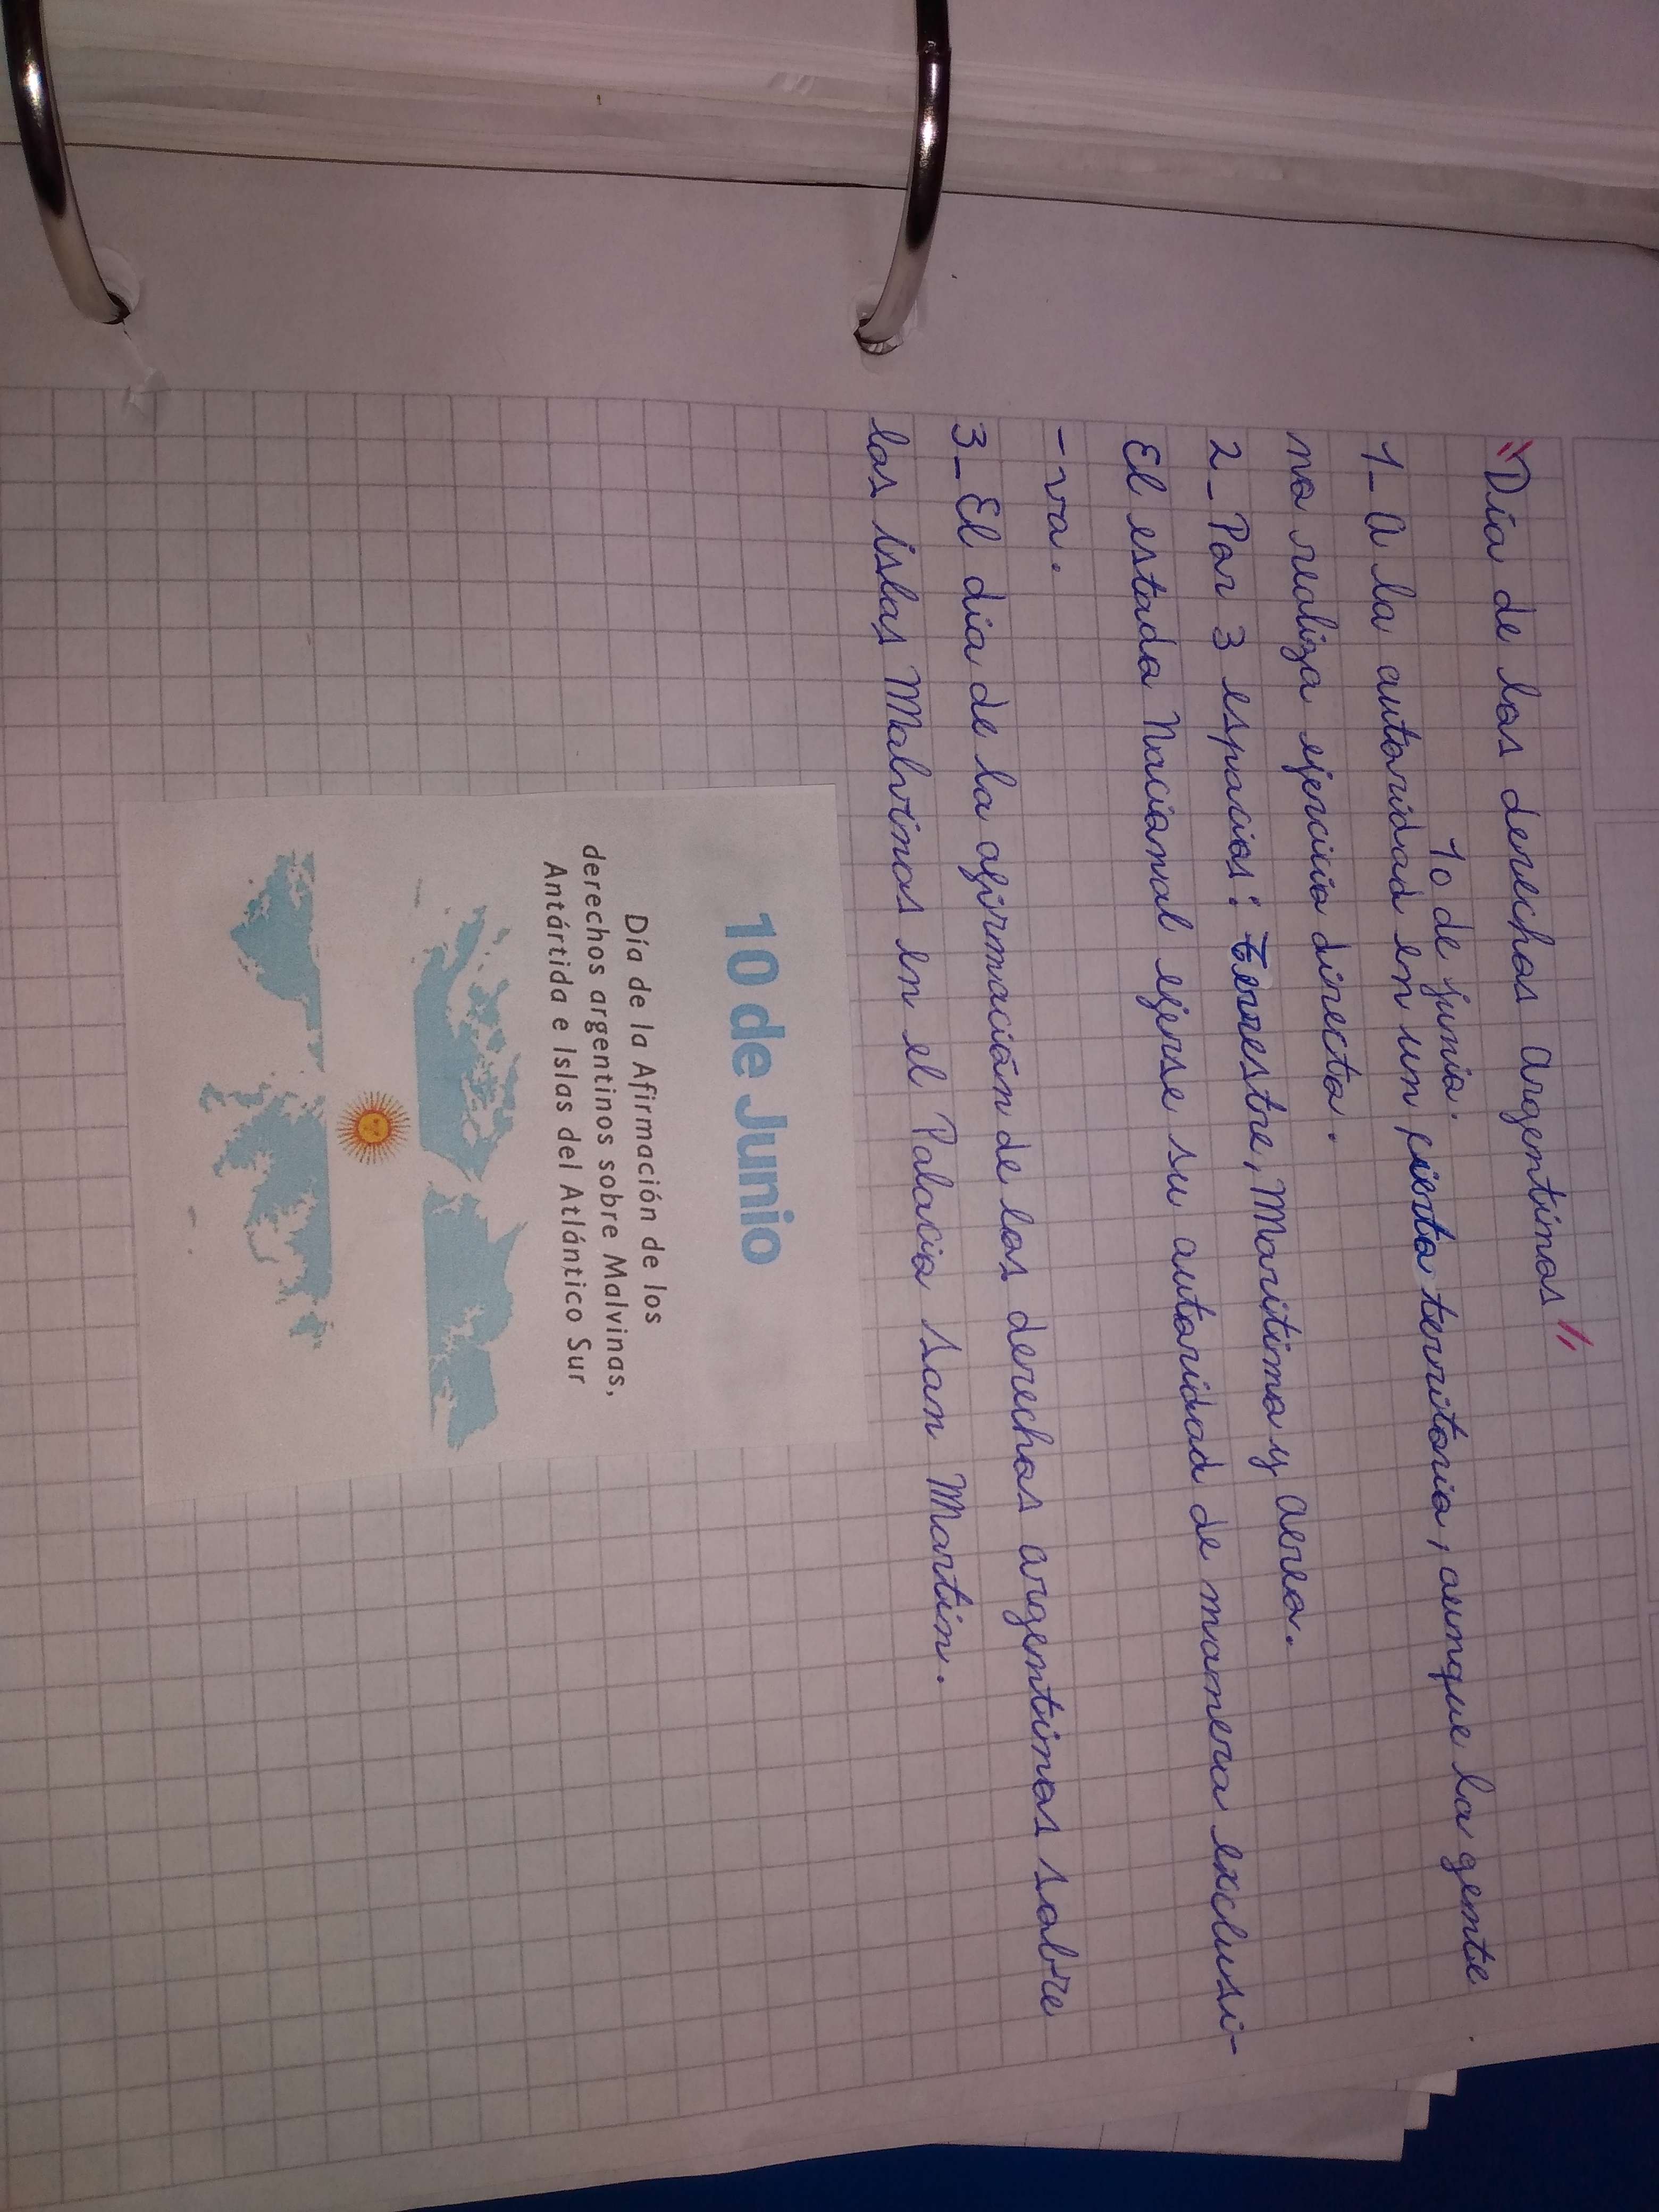 "Día de los derechos Argentinos"
10 de junio.
1_ A la autoridad en un cierto territorio, aunque la gente
no realiza ejercicio directo.
2_ Por 3 espacios: terrestre, Maritima y aerea.
El estado Nacional ejerse su autoridad de manera exclusi-
-va.
3_ El día de la afirmación de los derechos argentinos sobre
las islas Malvinas en el Palacio San Martín.
10 de Junio
Día de la Afirmación de los
derechos argentinos sobre Malvinas,
Antártida e Islas del Atlántico Sur